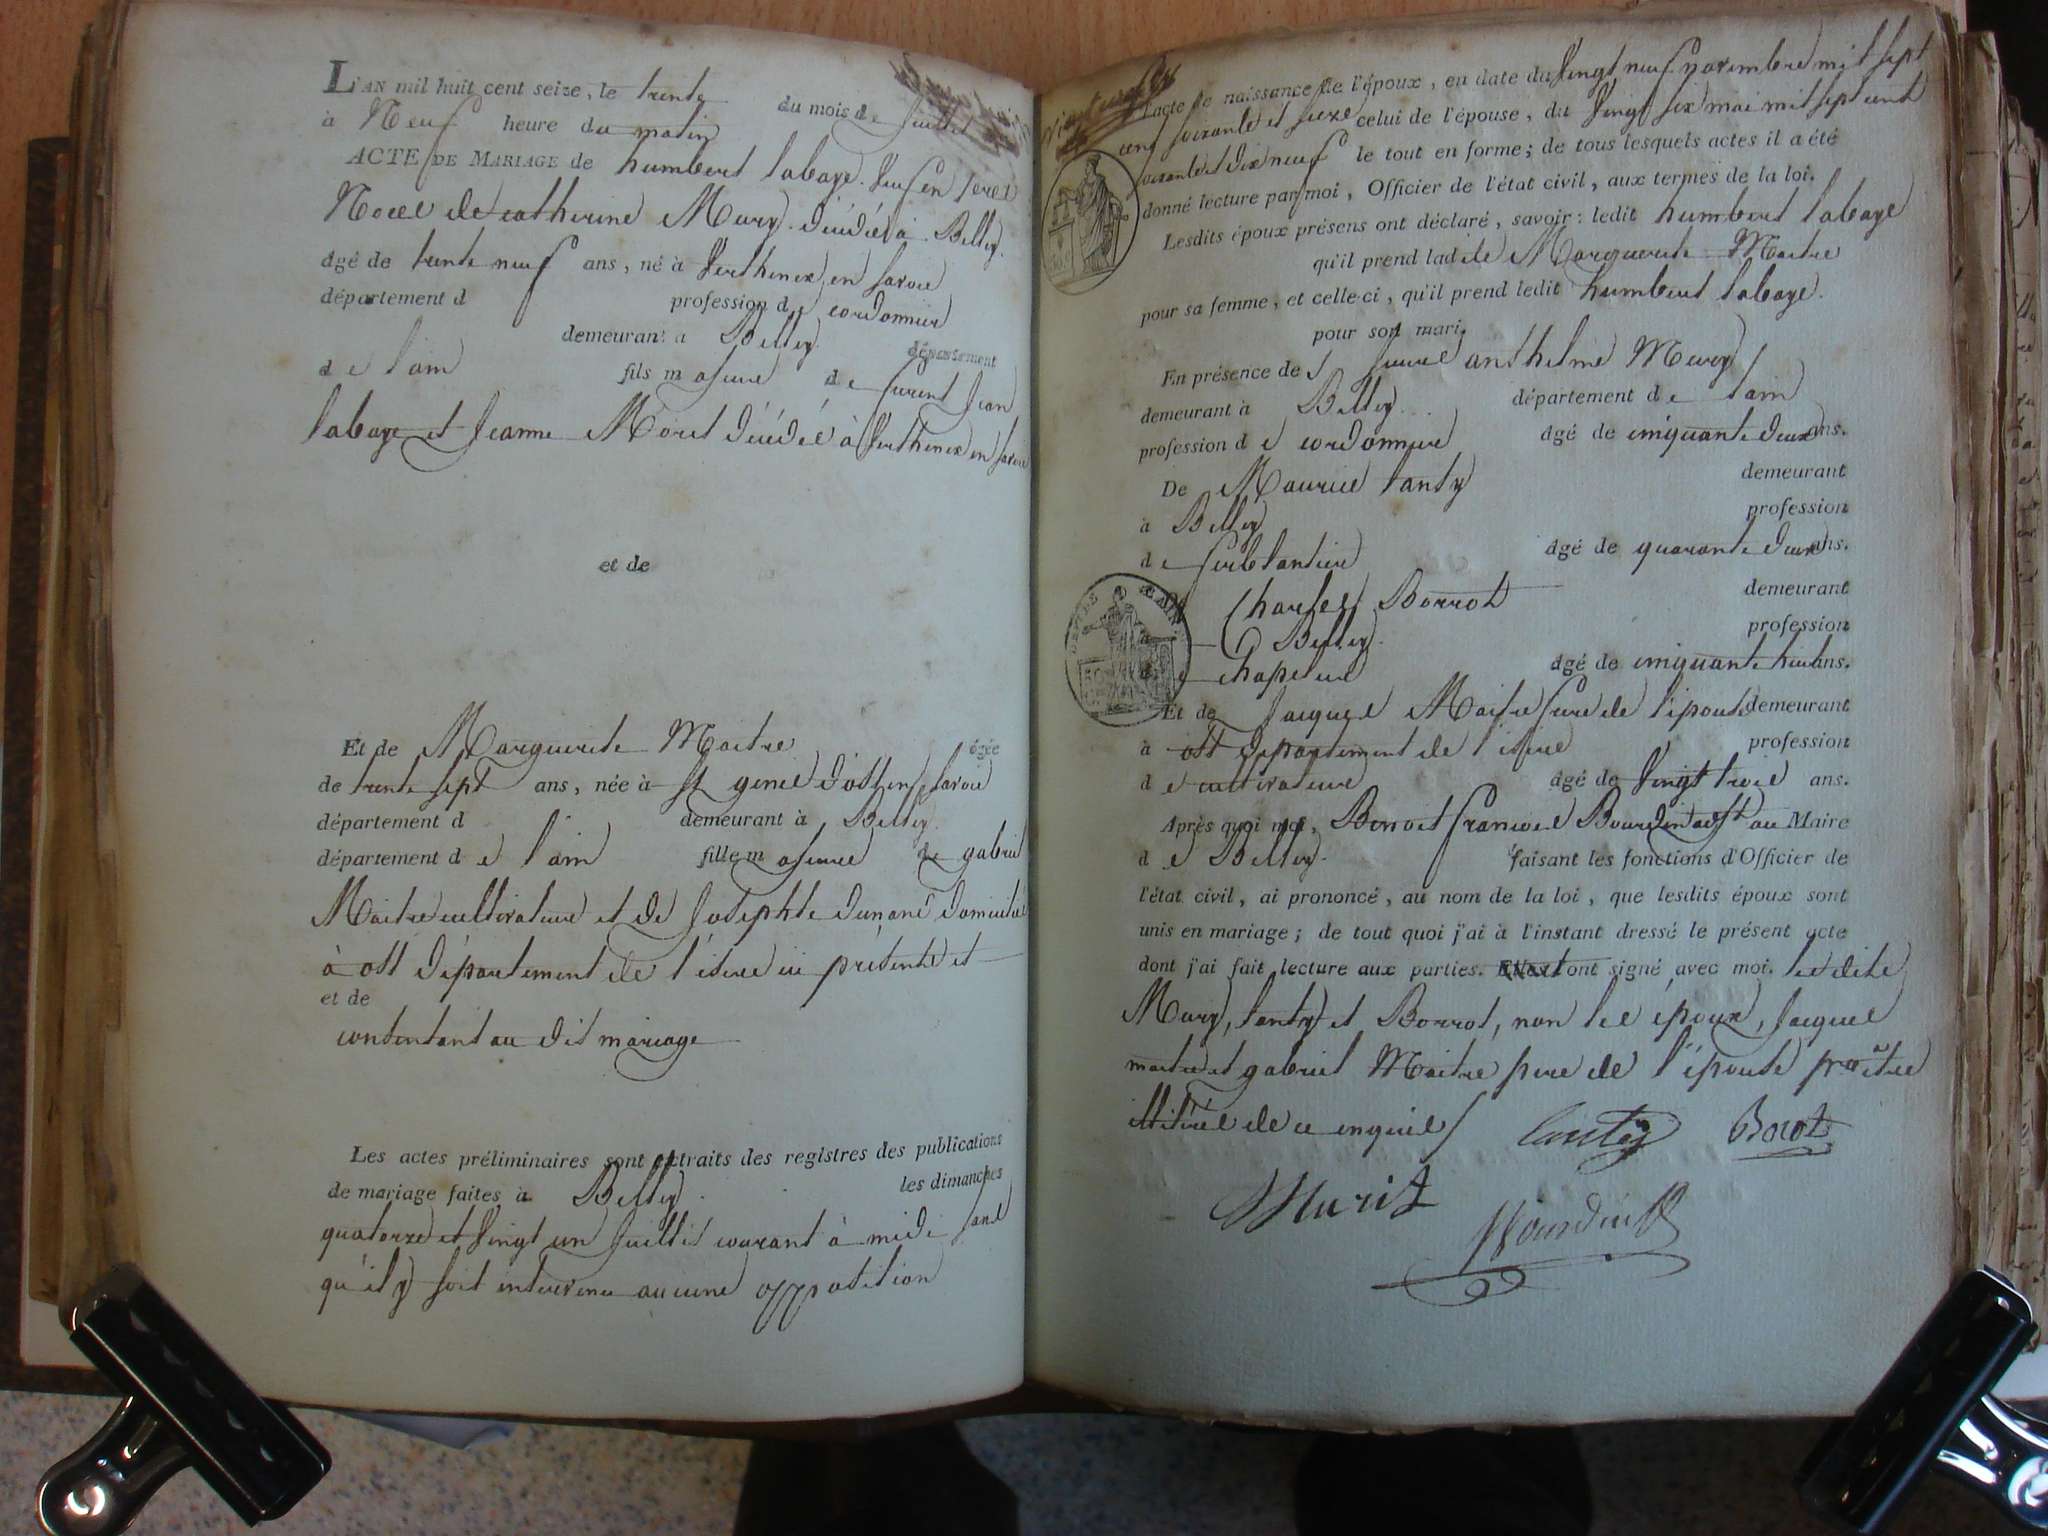 L'AN mil huit cent seize, le trente du mois de juillet
à Neuf heure du matin
ACTE DE MARIAGE de humbert labaye veuf en
Noces de catherine Mury décédée à Belley
âgé de trente neuf ans, né à Verthemex en savoie
département d profession de cordonnier
demeurant à Belley département
de l'ain fils majeur de furent Jean
labaye et Jeanne Moret décédés à Verthemex en savoie
et de
Et de Marguerite Maitre âgée
de trente sept ans, née à St genie d'ost en savoie
département d demeurant à Belley
département de l'ain fille majeure de gabriel
Maitre cultivateur et de Josephte domicilié
à ost département de l'isere ici présents et
et de
consentant au dit mariage
Les actes préliminaires sont extraits des registres des publications
de mariage faites à Belley les dimanches
quatorze et vingt un juillet courant à midi sans
qu'il y soit intervenu aucune opposition
l'acte de naissance de l'époux, en date du vingt neuf novembre mil sept
cent soixante et seize celui de l'épouse, du vingt six mai mil sept cent
soixante et dix neuf le tout en forme; de tous lesquels actes il a été
donné lecture par moi, Officier de l'état civil, aux termes de la loi.
Lesdits époux présens ont déclaré, savoir: ledit humbert labaye
qu'il prend ladite Marguerite Maitre
pour sa femme, et celle-ci, qu'il prend ledit humbert labaye.
pour son mari.
En présence de sieurs anthelme Mury
demeurant à Belley département de l'ain
profession de cordonnier âgé de cinquante deux ans.
De Maurice tanty demeurant
à Belley profession
de ferblantier âgé de quarante deux ans.
Charles Borrot demeurant
à Belley profession
de chapelier âgé de cinquante huit ans.
Et de Jacques Maitre frere de l'épouse demeurant
à ost département de l'isere profession
de cultivateur âgé de vingt trois ans.
Après quoi moi, Benoit francois Bourdin adjt au Maire
de Belley faisant les fonctions d'Officier de
l'état civil, ai prononcé, au nom de la loi, que lesdits époux sont
unis en mariage; de tout quoi j'ai à l'instant dressé le présent acte
dont j'ai fait lecture aux parties. ont signé avec moi. les dits
Mury, tanty et Borrot, non les époux, Jacques
maitre et gabriel Maitre pere de l'épouse pr être
illitérés de ce enquis
tanty Borot
Murit
Bourdin